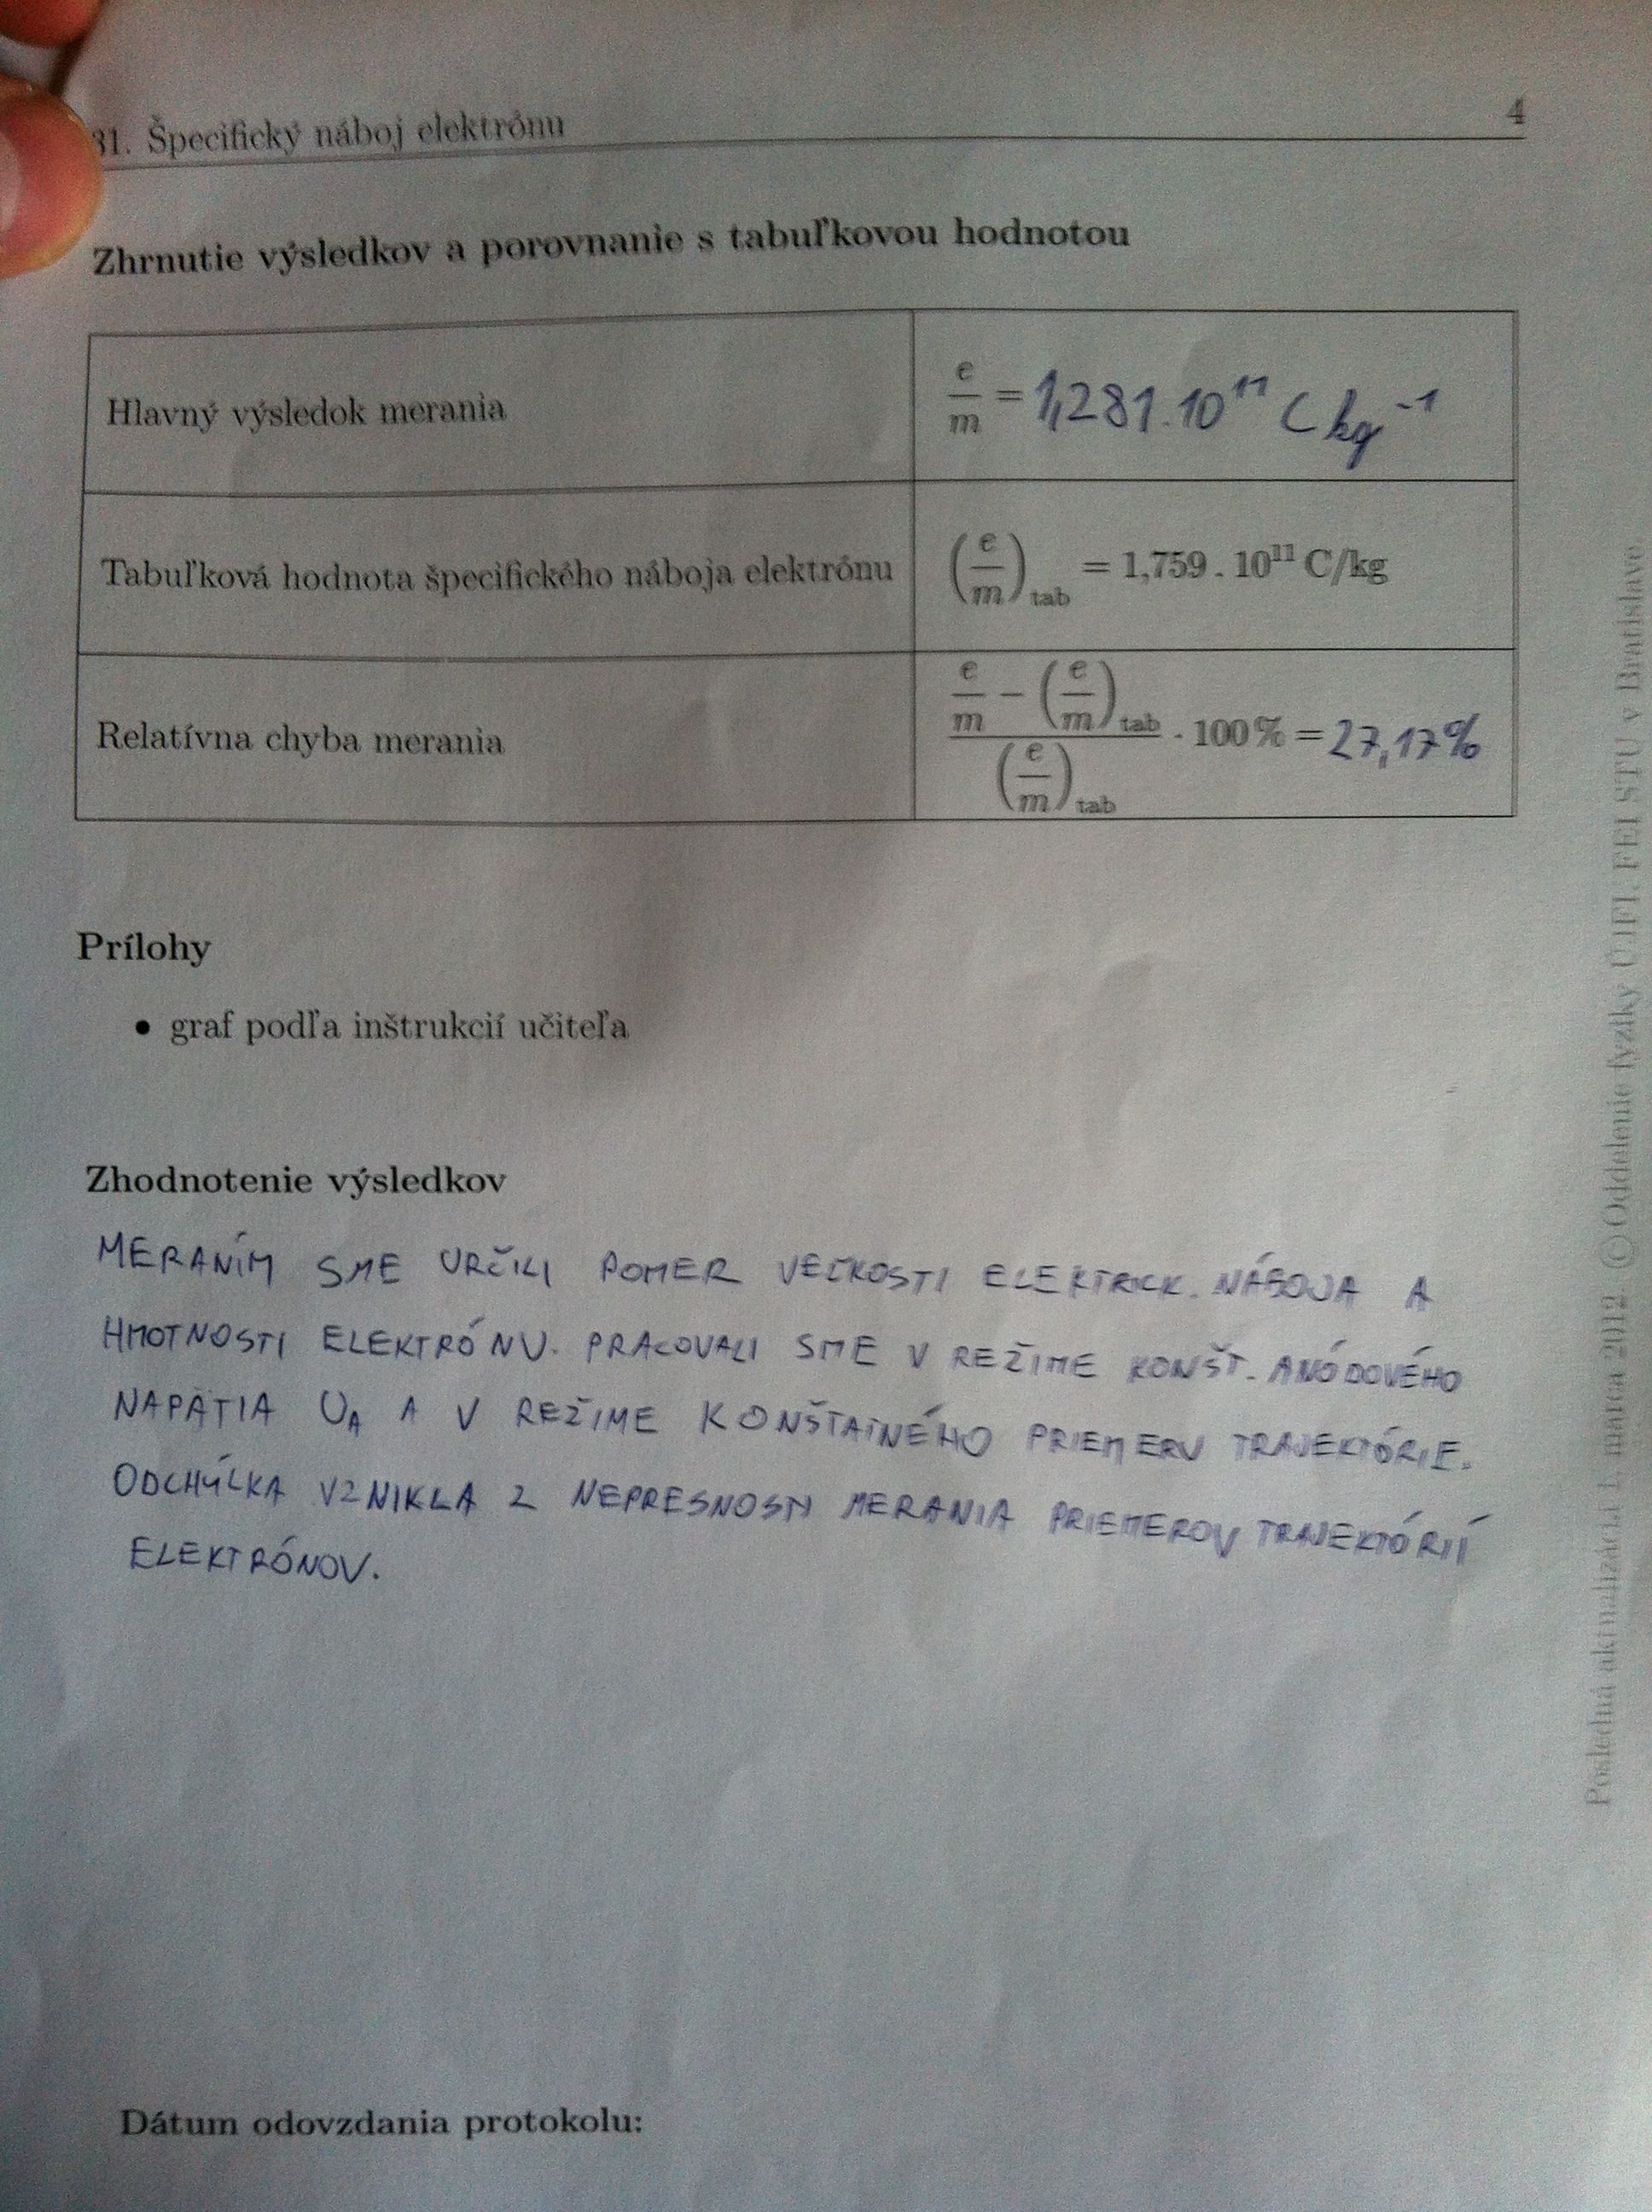 31. Špecifický náboj elektrónu 4
Zhrnutie výsledkov a porovnanie s tabuľkovou hodnotou
Hlavný výsledok merania e/m = 1,281.10¹¹ C kg⁻¹
Tabuľková hodnota špecifického náboja elektrónu (e/m)tab = 1,759 . 10¹¹ C/kg
Relatívna chyba merania (e/m − (e/m)tab)/(e/m)tab . 100 % = 27,17%
Prílohy
• graf podľa inštrukcií učiteľa
Zhodnotenie výsledkov
MERANÍM SME URČILI POMER VEĽKOSTI ELEKTRICK. NÁBOJA A
HMOTNOSTI ELEKTRÓNU. PRACOVALI SME V REŽIME KONŠT. ANÓDOVÉHO
NAPÄTIA UA A V REŽIME KONŠTATNÉHO PRIEMERU TRAJEKTÓRIE.
ODCHÝLKA VZNIKLA Z NEPRESNOSTI MERANIA PRIEMEROV TRAJEKTÓRIÍ
ELEKTRÓNOV.
Dátum odovzdania protokolu:
Posledná aktualizácia 1. marca 2012 © Oddelenie fyziky ÚJFI, FEI STU v Bratislave